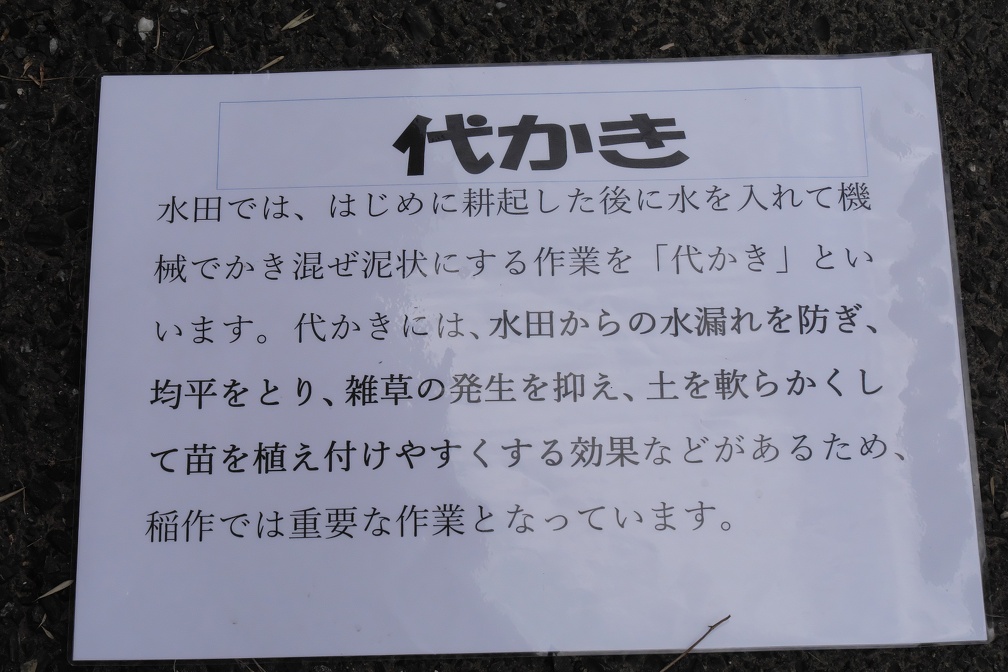 代かき
水田では、はじめに耕起した後に水を入れて機
械でかき混ぜ泥状にする作業を「代かき」とい
います。代かきには、水田からの水漏れを防ぎ、
均平をとり、雑草の発生を抑え、土を軟らかくし
て苗を植え付けやすくする効果などがあるため、
稲作では重要な作業となっています。